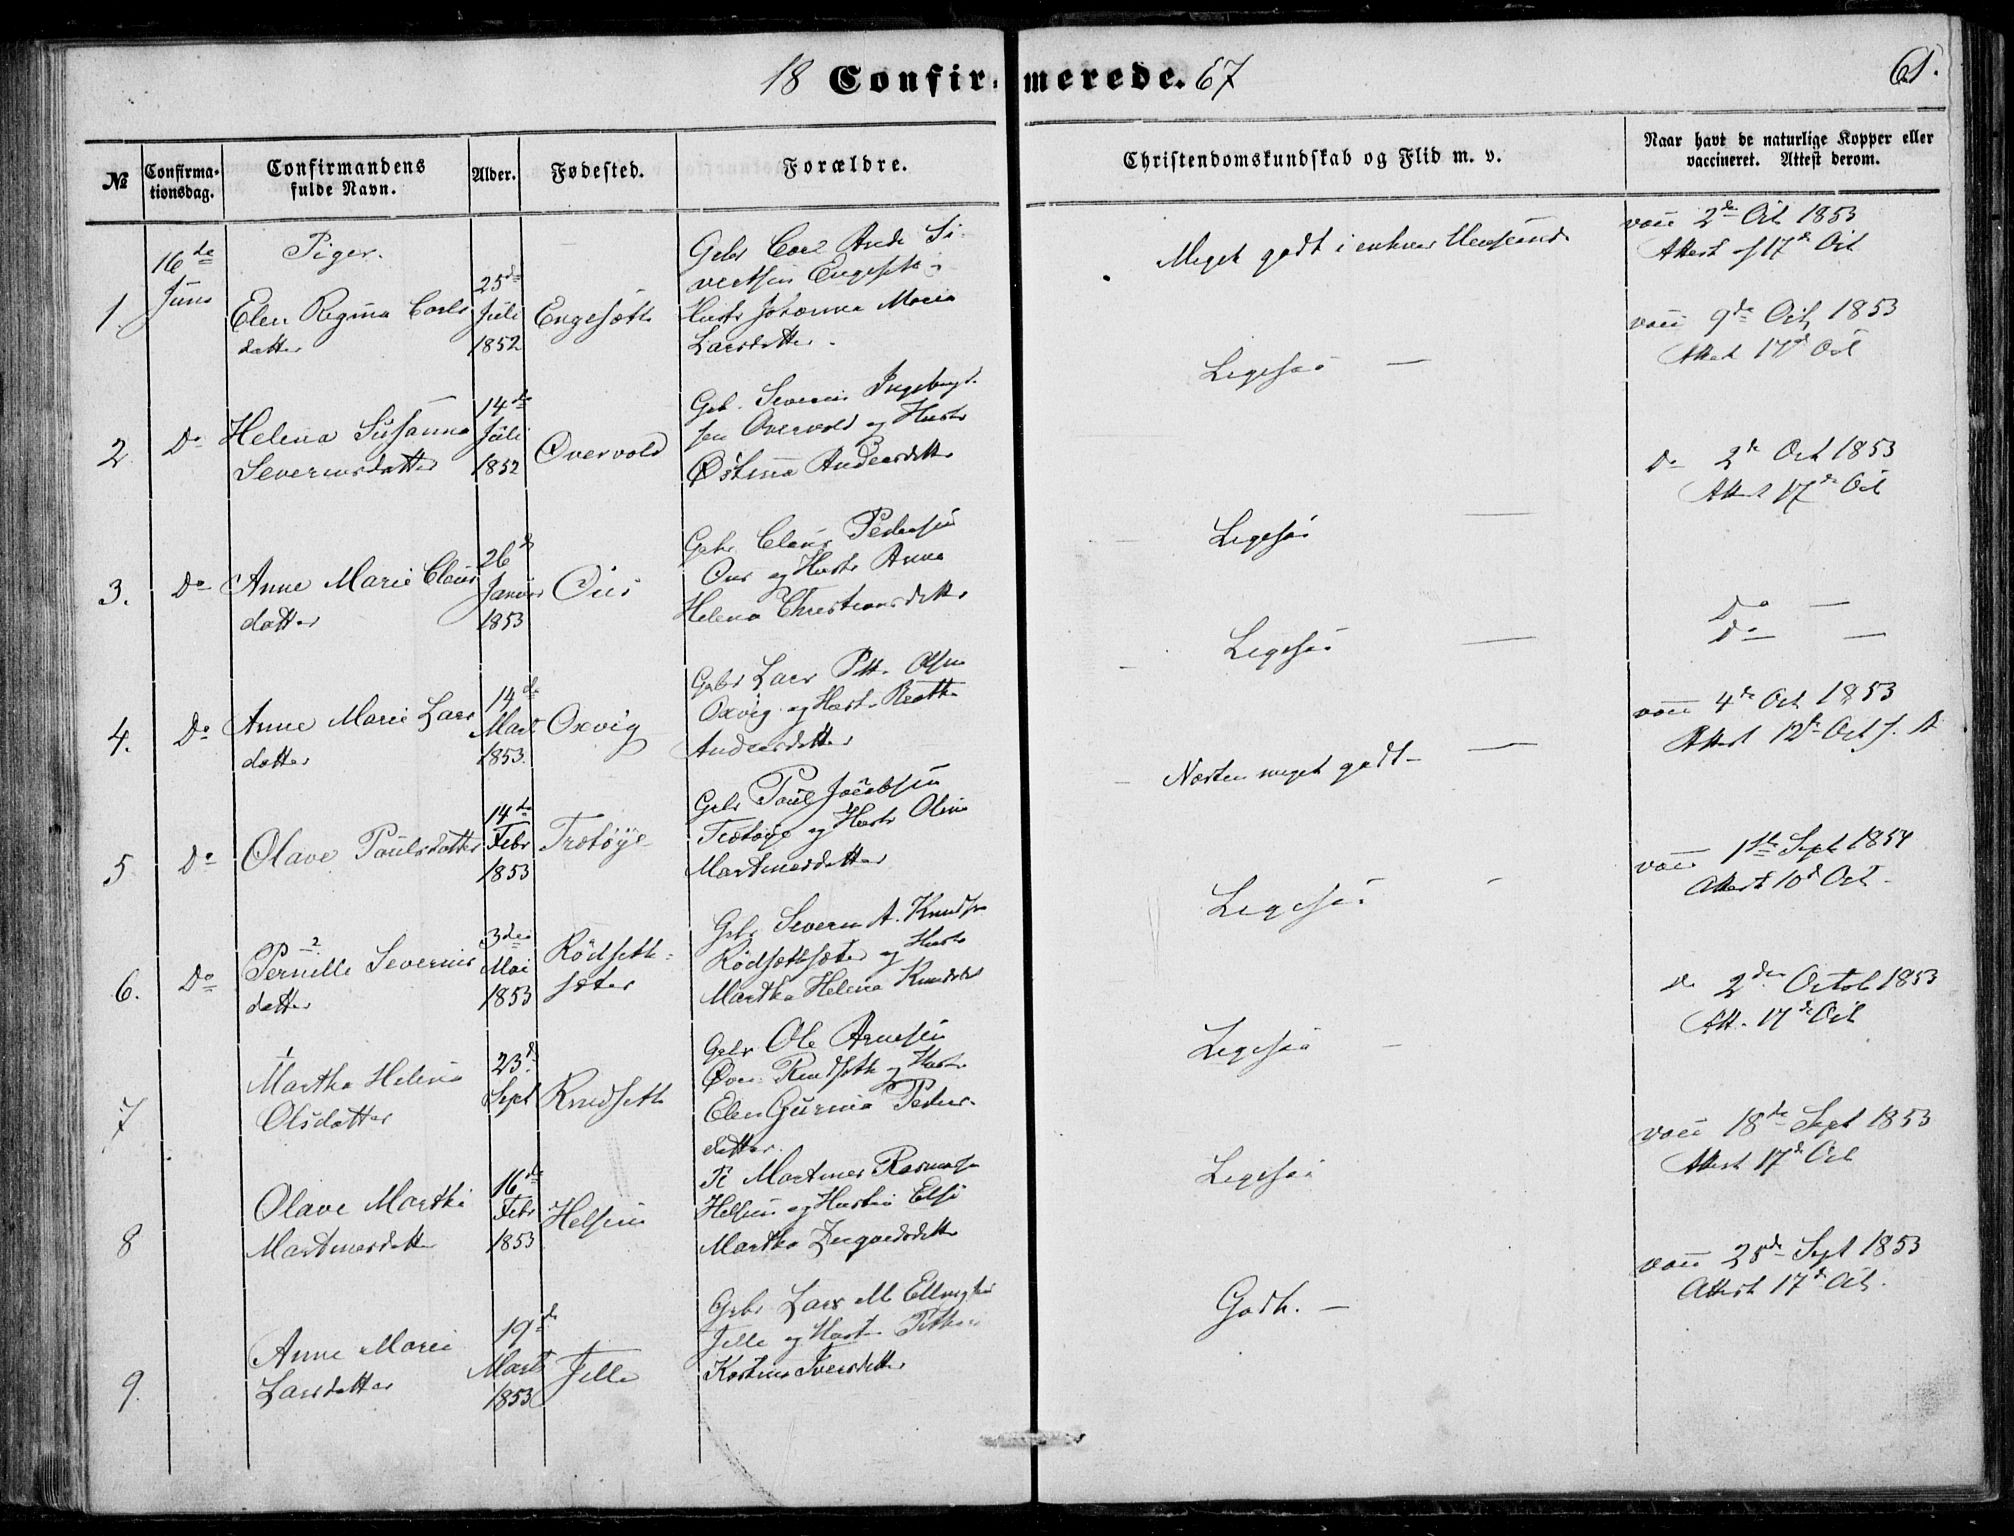 18 Confirmerede. 67
61.
No
Confirma-
tionsdag.
Confirmandens
fulde Navn.
Alder.
Fødested.
Forældre.
Christendomskundskab og Flid m. v.
Naar havt de naturlige Kopper eller
vaccineret. Attest derom.
Piger.
1
16de
Juni
Elen Regina Carls
datter
25de
Juli
1852
Engesætt
Gbr Carl And. Si-
vertsen Engeseth
Hustr Johanna Maria
Larsdatter.
Meget godt i enhver Henseende
vacc 2de Oct 1853
Attest af 17de Oct
2
Do
Helena Susanna
Severinsdatter
14de
Juli
1852
Overvold
Gbr. Severin Ingebrigt-
sen Overvold og Hustr
Østina Andersdttr
Ligesaa —
vacc 9de Oct 1853
Attest 17de Oct
3.
Do
Anne Marie Claus
datter
26
Januar
1853
Ous
Gbr Claus Pedersen
Ous og Hustr Anna
Helena Christiansdttr
Ligesaa —
Do 2de Oct 1853
Attest 17de Oct
4.
Do
Anne Marie Lars
datter
14de
Mart
1853.
Oxvig
Gbr Lars Pett. Olsen
Oxvig og Hustr Beathe
Andersdatter
Ligesaa —
Do —
Do —
5
Do
Olave Paulsdatter
14de
Febr
1853
Trætøye
Gbr Paul Jacobsen
Trætøye og Hustr Oline
Martinusdatter
Næsten meget godt —
vacc 4de Oct 1853
Attest 12te Oct s. A
6.
Do
2
Pernelle Severins
datter
3die
Mai
1853
Rødseth-
sæter
Gbr Severin A. Knudsen
Rødsethsæter og Hustr
Martha Helena Knudsdtr
Ligesaa —
vacc 1ste Sept 1854
Attest 10de Oct
7
1
Martha Helena
Olsdatter
23de
Sept
Knudseth
Gbr Ole Arnesen
Øvre Knudseth og Hustr
Elen Gurina Peders-
datter.
Ligesaa —
do 2den Octob 1853
Att. 17de Oct
8
Olave Martha
Martinusdttr
16de
Febr
1853
Helsem
Martinus Rasmussen
Helsem og Hustru Else
Martha
Ligesaa
vacc 18de Sept 1853
Attest 17de Oct
9.
Anne Marie
Larsdatter
19de
Mart
1853
Jelle
Gbr Lars M. Ellingsen
Jelle og Hustr
Iversdttr
Godt. —
vacc 25de Sept 1853
Attest 17de Oct.